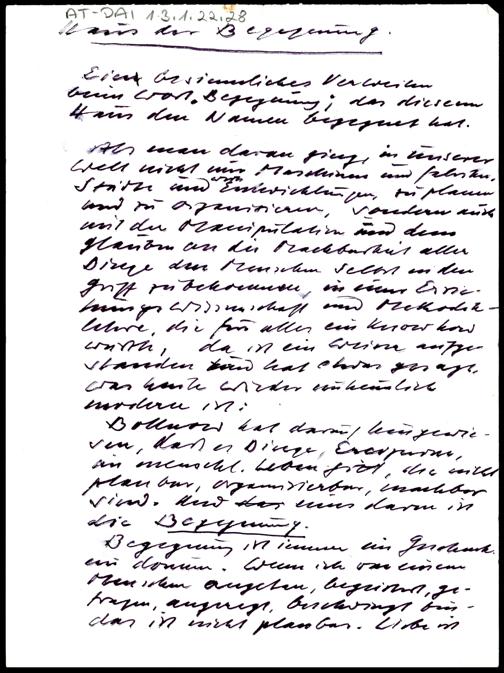 AT-DAI 1.3.1.22.28
Haus der Begegnung.
Ein besinnliches Verweilen
beim Wort „Begegnung“, das diesem
Haus den Namen gegeben hat.
Als man daran ging, in unserer
Welt nicht nur Maschinen und Fabriken,
Städte und Entwicklungen, zu planen
und zu organisieren, sondern auch
mit der Manipulation und dem
glauben an die Machbarkeit aller
Dinge den Menschen selbst in den
Griff zu bekommen, in einer Erzie-
hungswissenschaft und Methodik-
lehre, die für alles ein know how
wusste, da ist ein Weiser aufge-
standen und hat etwas gesagt,
was heute wieder unheimlich
modern ist:
Bollnow hat darauf hingewie-
sen, dass es Dinge, Ereignisse,
im menschl. Leben gibt, die nicht
planbar, organisierbar, machbar
sind. Und eins davon ist
die Begegnung.
Begegnung ist immer ein Geschenk.
ein donum. Wenn ich von einem
Menschen angetan, begeistert, ge-
tragen, angeregt, beschwingt bin -
das ist nicht planbar. Liebe ist